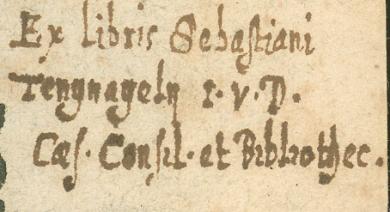 Ex libris Sebastiani
Tengnageln I. V. D.
Cæs. Consil. et Bibliothec.